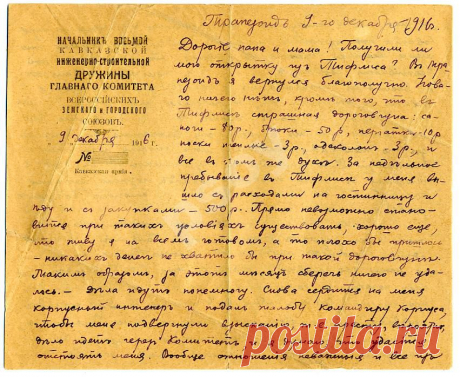 Трапезондъ 9-го декабря 1916г.
НАЧАЛЬНИКЪ ВОСЬМОЙ
КАВКАЗСКОЙ
ИНЖЕНЕРНО-СТРОИТЕЛЬНОЙ
ДРУЖИНЫ
ГЛАВНАГО КОМИТЕТА
ВСЕРОССІЙСКИХЪ
ЗЕМСКАГО И ГОРОДСКОГО
СОЮЗОВЪ.
9 декабря 1916 г.
№
Кавказская армія.
Дорогіе папа и мама! Получили ли
мою открытку изъ Тифлиса? Въ Тра
пезондъ я вернулся благополучно. Ново-
го ничего нѣтъ, кромѣ того, что въ
Тифлисѣ страшная дороговизна: са-
поги - 80 р., брюки - 50 р, перчатки - 10 р
носки теплые - 3 р., одеколонъ - 3 р., и
все въ томъ же духѣ. За недѣльное
пребываніе въ Тифлисѣ у меня вы-
шло съ расходами на гостиницу и
ѣду и съ закупками - 500 р. Прямо невозможно стано-
вится при такихъ условіяхъ существовать, хорошо еще,
что живу я на всемъ готовомъ, а то плохо бы пришлось
- никакихъ денегъ не хватило бы при такой дороговизнѣ.
Такимъ образомъ, за этотъ мѣсяцъ сберечь ничего не уда-
лось. - Дѣла идутъ понемногу. Снова сердится на меня
корпусный инженеръ и подалъ жалобу Командиру Корпуса,
чтобы меня подвергнули взысканію
дѣло идетъ черезъ Комитетъ и я думаю что удастся
отстоять меня. Вообще отношенія неважныя и все изъ